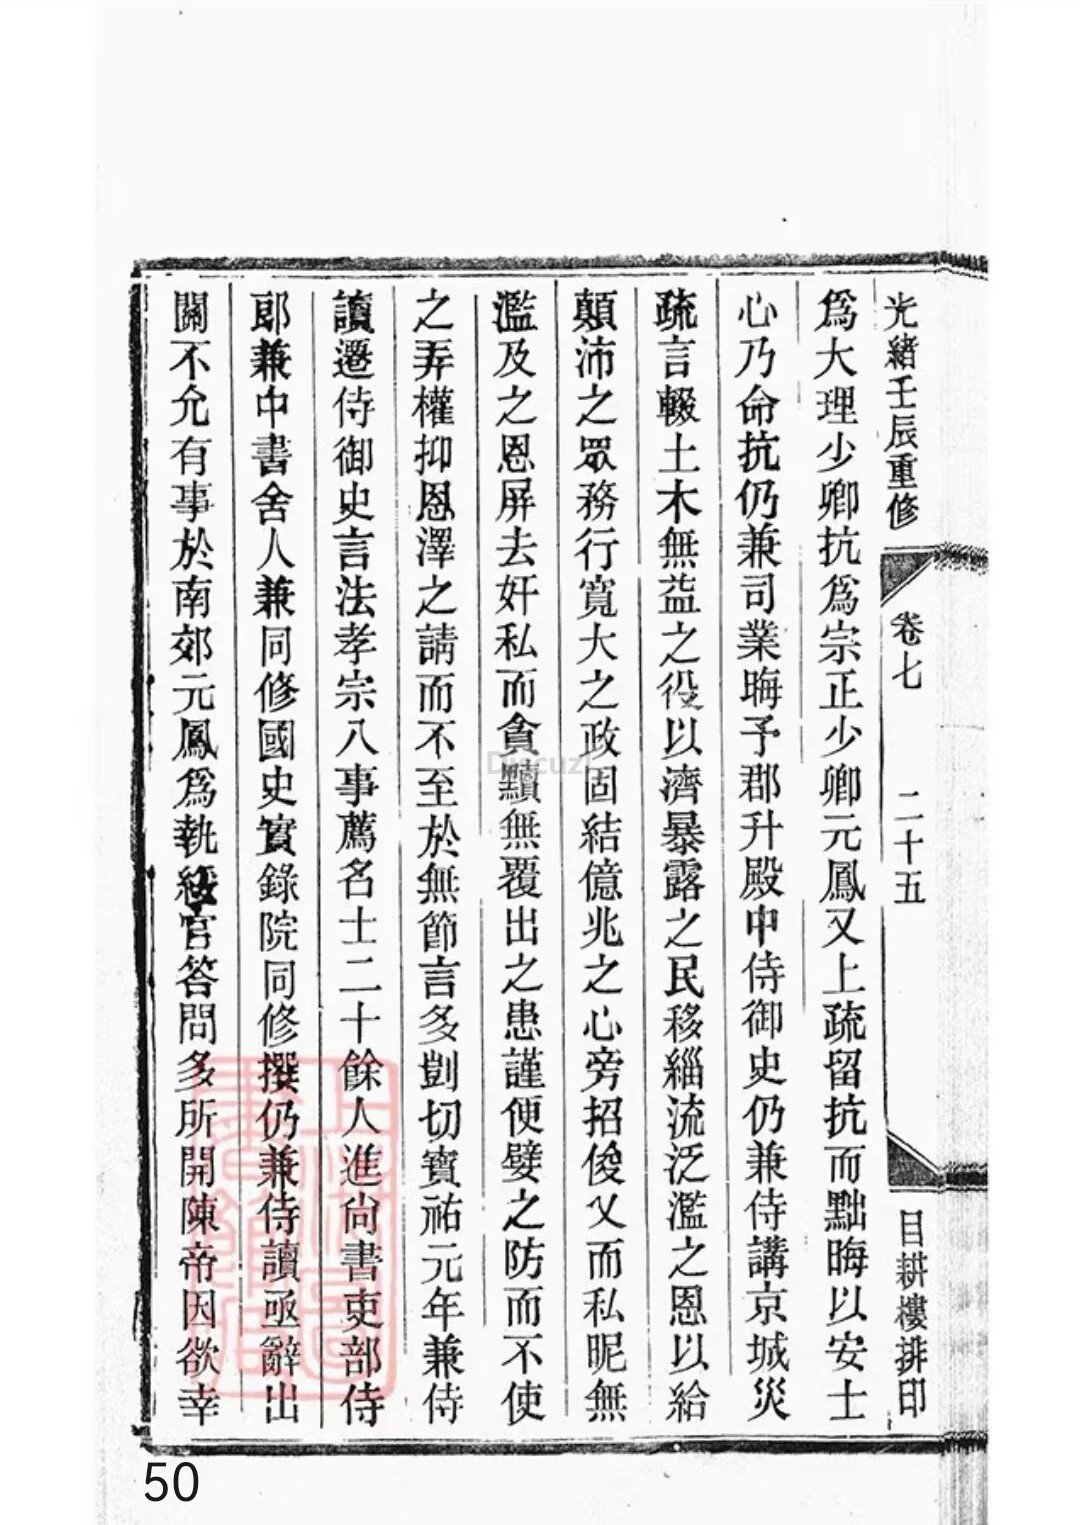 光緒壬辰重修
卷七
二十五
目耕樓排印
爲大理少卿抗爲宗正少卿元鳳又上疏留抗而黜晦以安士
心乃命抗仍兼司業晦予郡升殿中侍御史仍兼侍講京城災
疏言輟土木無益之役以濟暴露之民移緇流泛濫之恩以給
顛沛之眾務行寬大之政固結億兆之心旁招俊乂而私昵無
濫及之恩屏去奸私而貪黷無覆出之患謹便嬖之防而不使
之弄權抑恩澤之請而不至於無節言多剴切寶祐元年兼侍
讀遷侍御史言法孝宗八事薦名士二十餘人進尚書吏部侍
郎兼中書舍人兼同修國史實錄院同修撰仍兼侍讀亟辭出
關不允有事於南郊元鳳爲執綏官答問多所開陳帝因欲幸
Discuz!
50